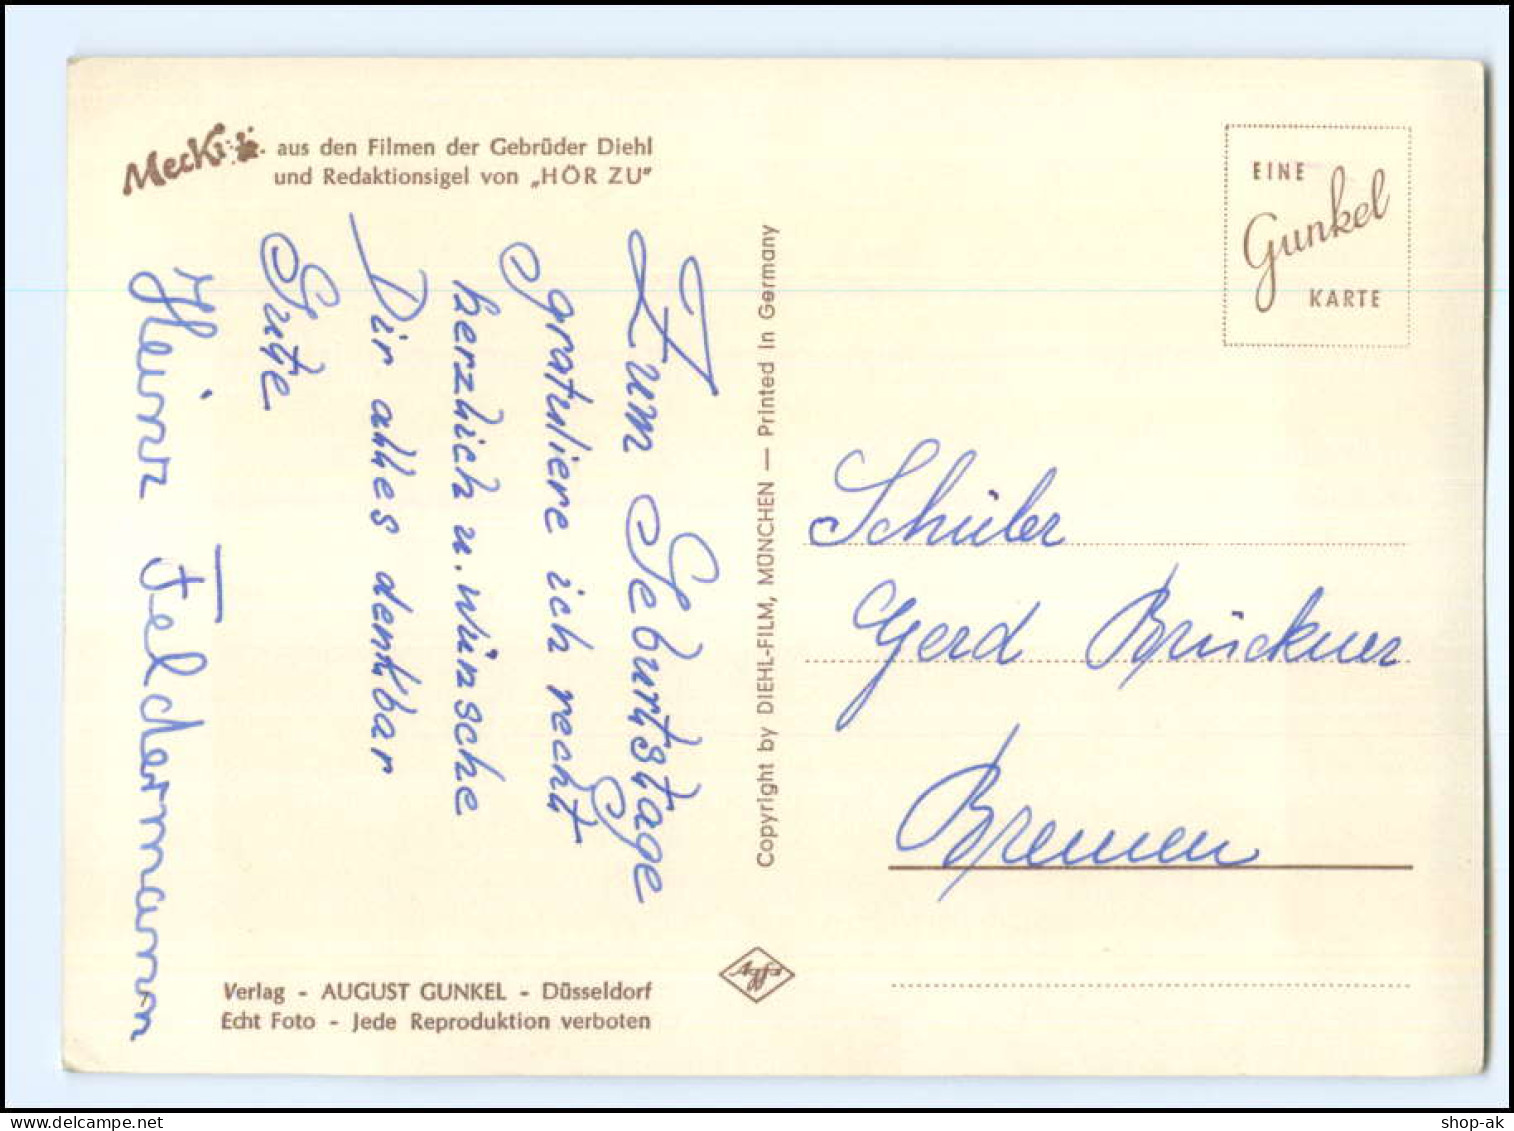 Mecki aus den Filmen der Gebrüder Diehl
und Redaktionsigel von „HÖR ZU"
Zum Geburtstage
gratuliere ich recht
herzlich u. wünsche
Dir alles denkbar
Gute
Heinz Feldermann
Verlag - AUGUST GUNKEL - Düsseldorf
Echt Foto - Jede Reproduktion verboten
Copyright by DIEHL-FILM, MÜNCHEN — Printed in Germany
Agfa
EINE
Gunkel
KARTE
Schüler
Gerd Brückner
Bremen
shop-ak